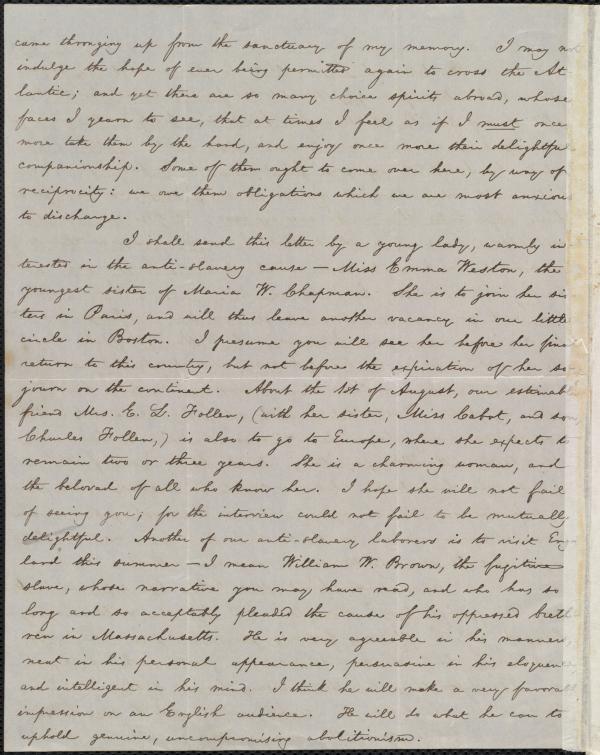 came thronging up from the sanctuary of my memory. I may no
indulge the hope of ever being permitted again to cross the At
lantic; and yet there are so many choice spirits abroad, whose
faces I yearn to see, that at times I feel as if I must once
more take them by the hand, and enjoy once more their delightfu
companionship. Some of them ought to come over here, by way of
reciprocity: we owe them obligations which we are most anxiou
to discharge.
I shall send this letter by a young lady, warmly in
terested in the anti-slavery cause — Miss Emma Weston, the
youngest sister of Maria W. Chapman. She is to join her sis
ters in Paris, and will thus leave another vacancy in our little
circle in Boston. I presume you will see her before her fina
return to this country, but not before the expiration of her so-
journ on the continent. About the 1st of August, our estimabl
friend Mrs. E. L. Follen, (with her sister, Miss Cabot, and son
Charles Follen,) is also to go to Europe, where she expects to
remain two or three years. She is a charming woman, and
the beloved of all who know her. I hope she will not fail
of seeing you; for the interview could not fail to be mutually
delightful. Another of our anti-slavery laborers is to visit Eng-
land this summer — I mean William W. Brown, the fugitive
slave, whose narrative you may have read, and who has so
long and so acceptably pleaded the cause of his oppressed breth
ren in Massachusetts. He is very agreeable in his manners
neat in his personal appearance, persuasive in his eloquenc
and intelligent in his mind. I think he will make a very favorab
impression on an English audience. He will do what he can to
uphold genuine, uncompromising abolitionism.